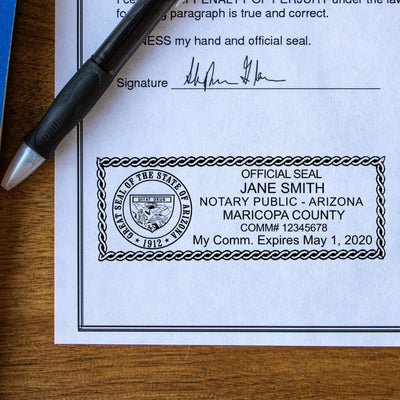 PENALTY OF PERJURY under the
paragraph is true and correct.
my hand and official seal.
Signature
OFFICIAL SEAL
JANE SMITH
NOTARY PUBLIC - ARIZONA
MARICOPA COUNTY
COMM# 12345678
My Comm. Expires May 1, 2020
GREAT SEAL OF THE STATE OF ARIZONA
DITAT DEUS
1912